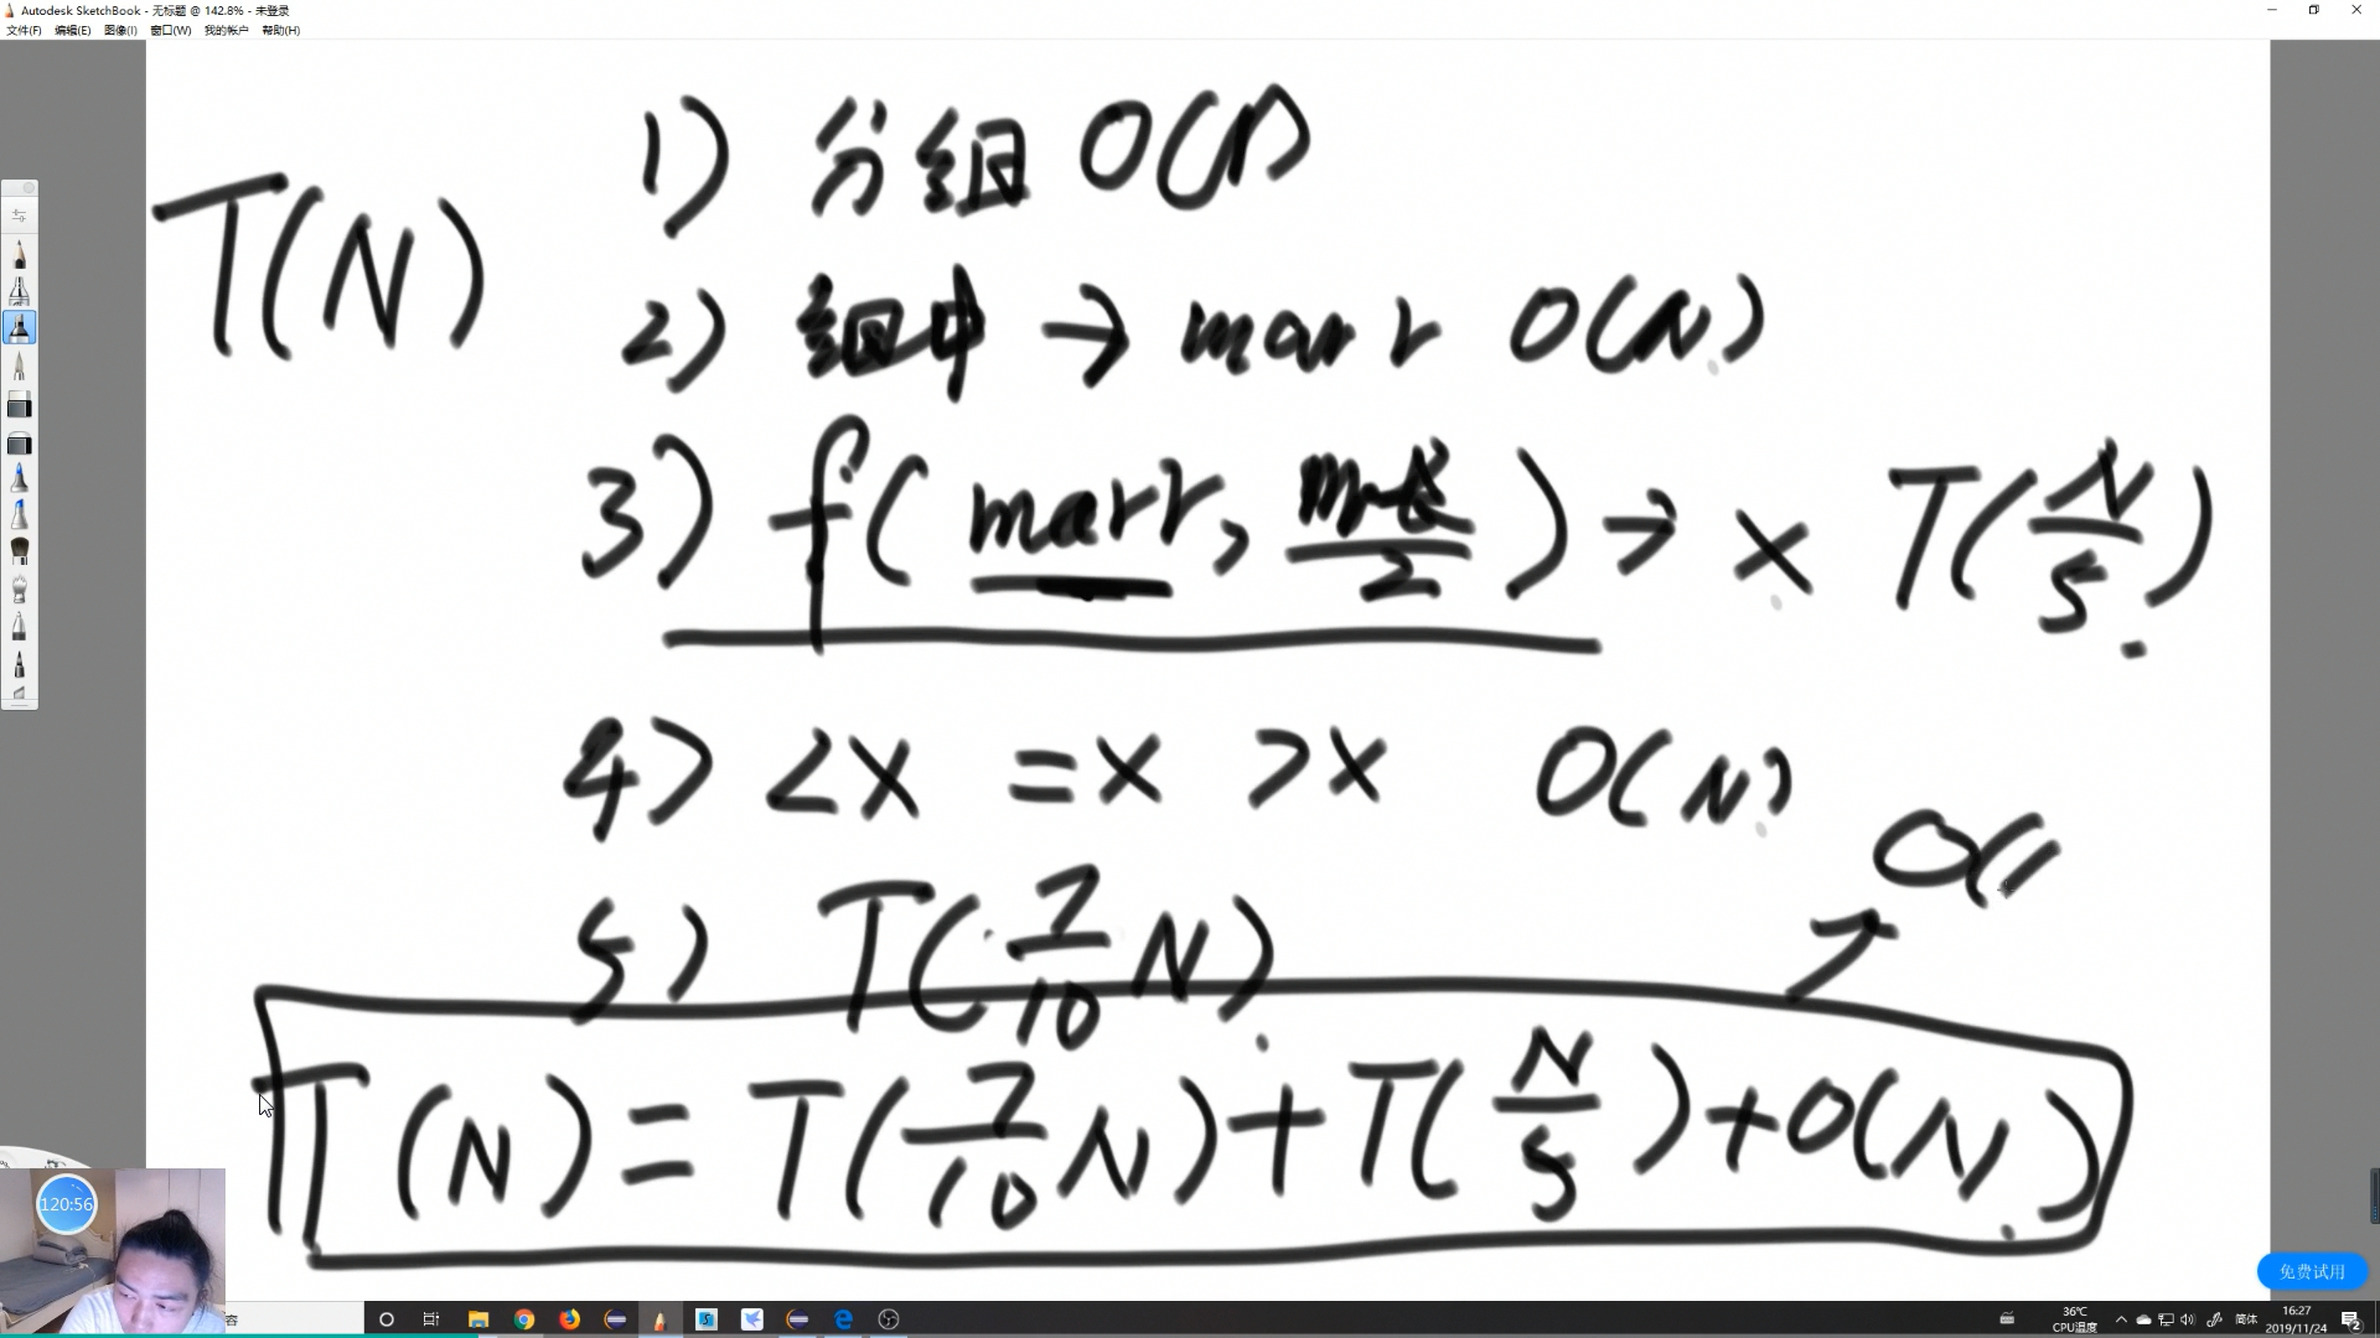 Autodesk SketchBook - 无标题 @ 142.8% - 未登录
文件(F) 编辑(E) 图像(I) 窗口(W) 我的帐户 帮助(H)
T(N)
1) 分组 O(1)
2) 组中 → marr O(N)
3) f( marr, /2 ) → x T(N/5)
4) <x =x >x O(N)
O(
5) T(7/10 N)
T(N) = T(7/10 N) + T(N/5) + O(N)
120:56
免费试用
容
36℃
CPU温度
简体
16:27
2019/11/24
2